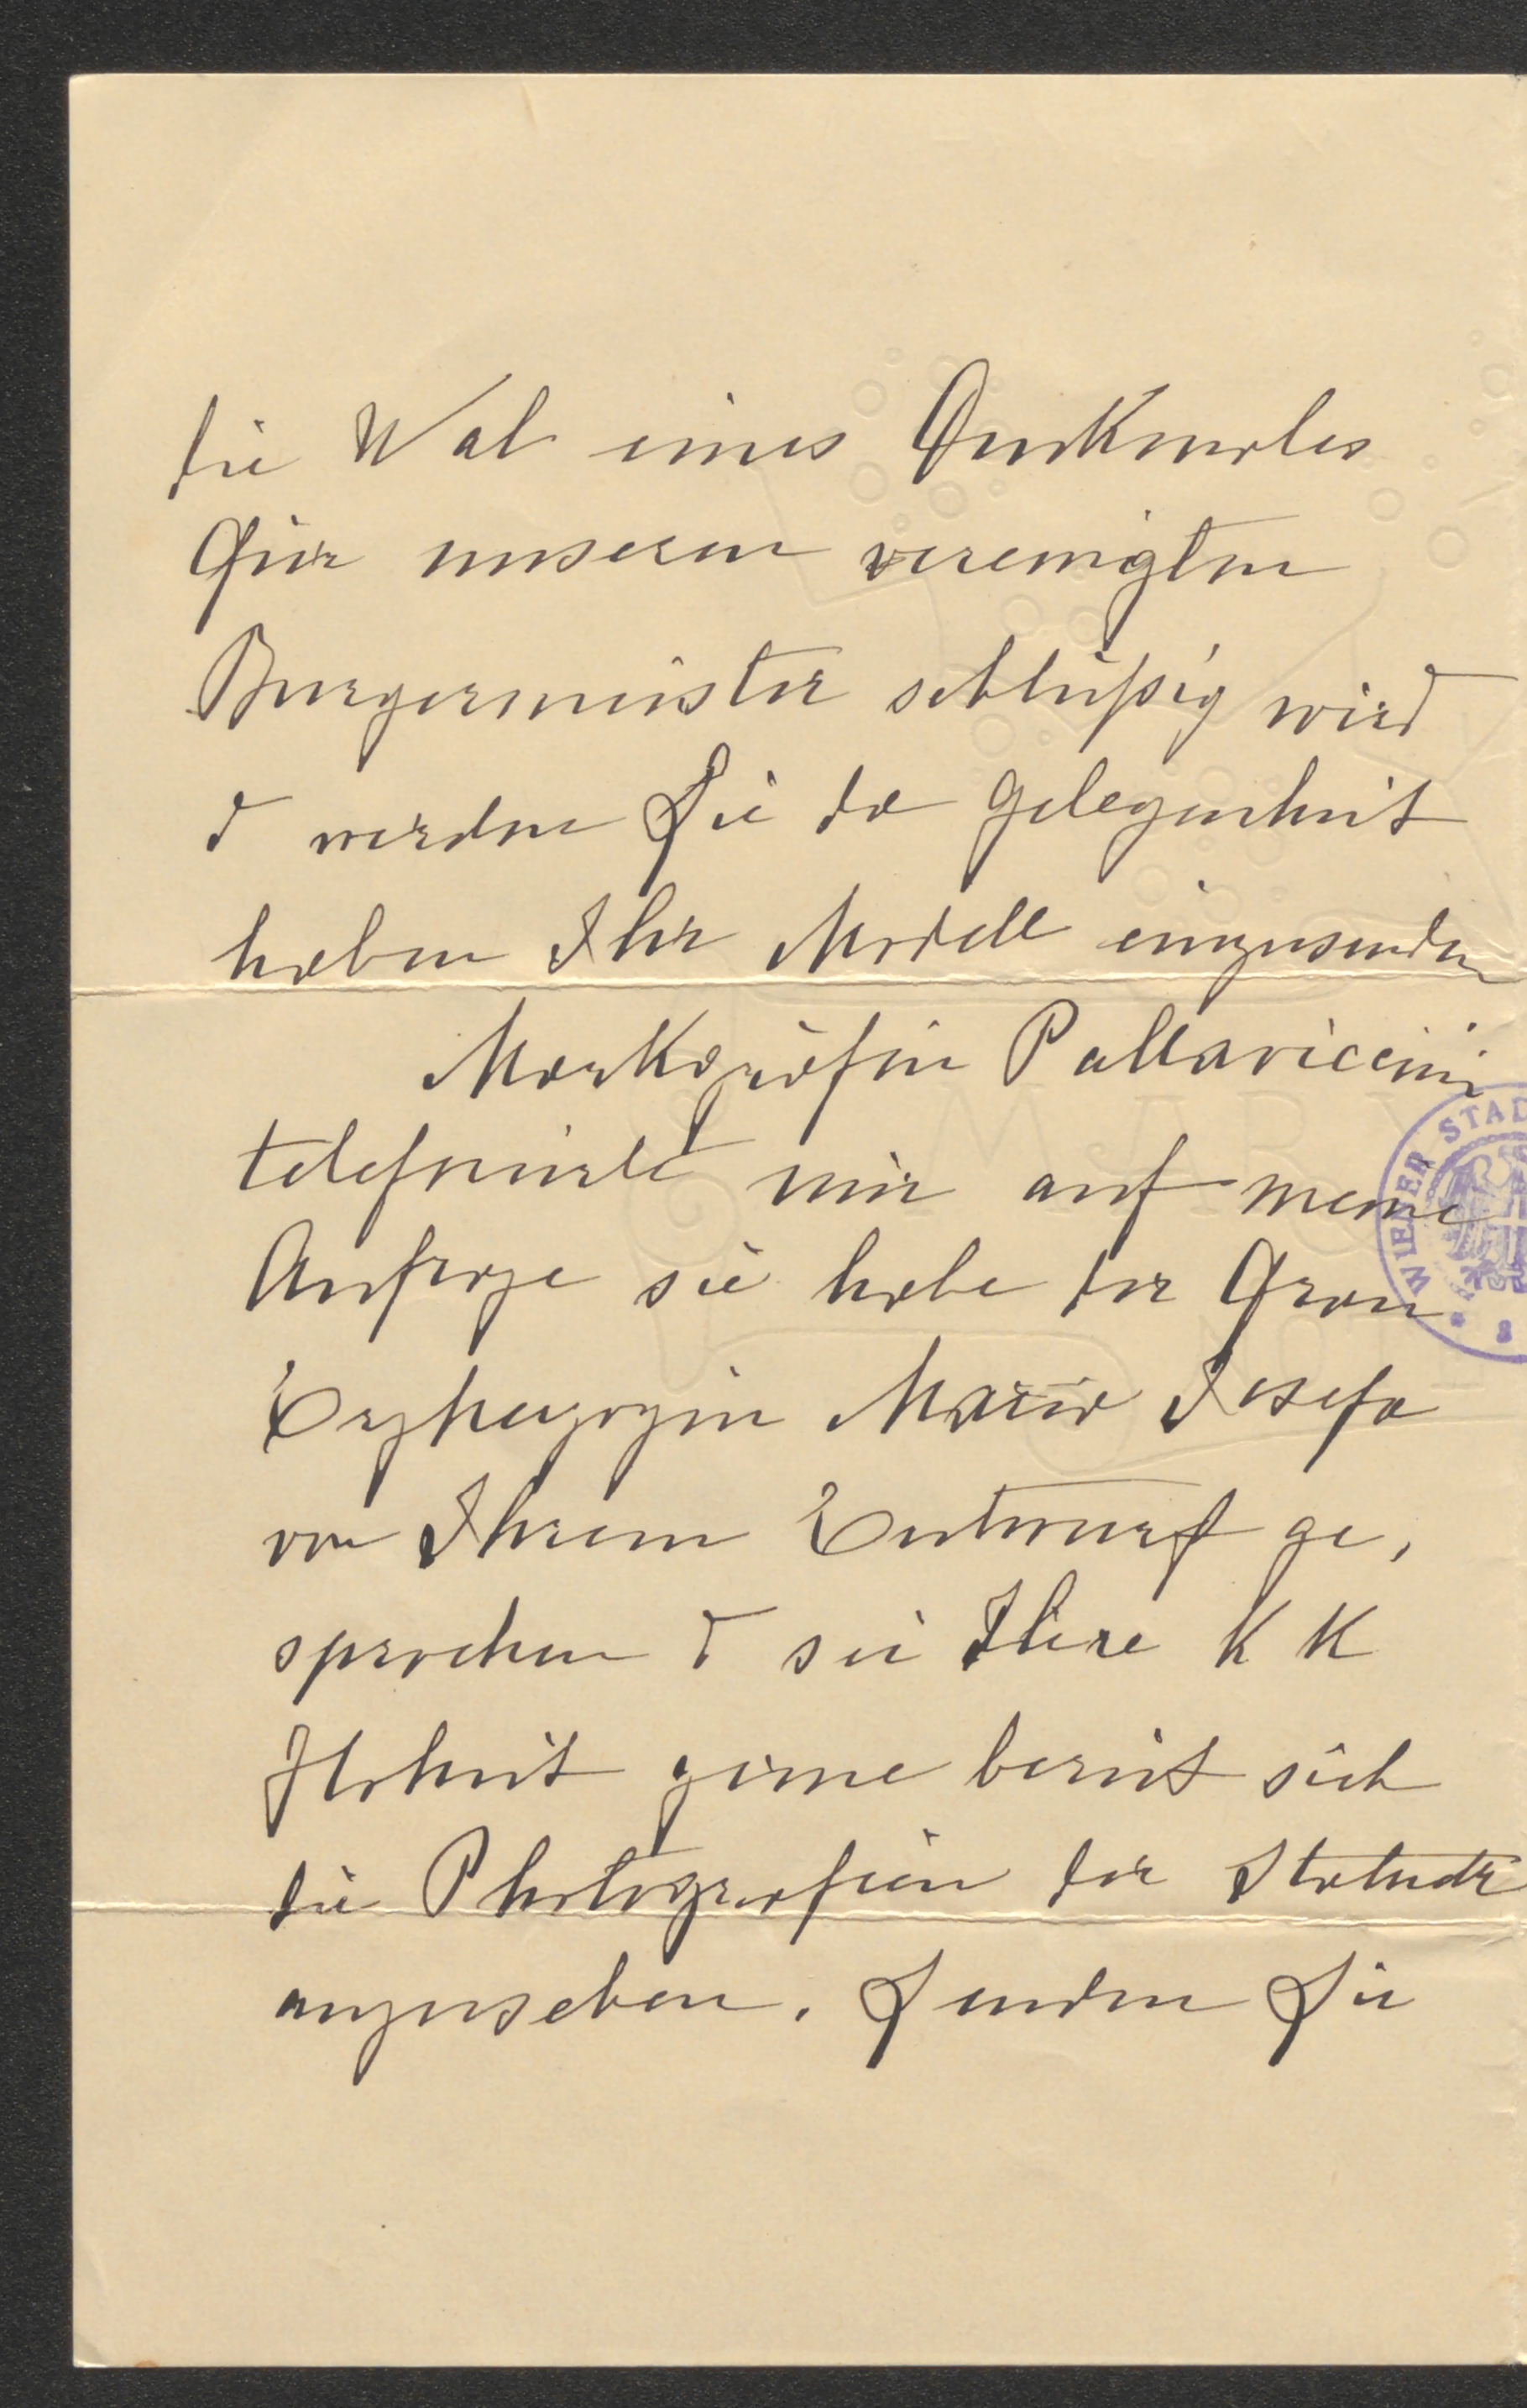 die Wal eines Denkmales
für unseren verewigten
Burgermeister schlüßig wird
& werden Sie da Gelegenheit
haben Ihr Modell einzusenden
Markgräfin Pallavicini
telefonirte mir auf meine
Anfrage sie habe der Frau
Erzherzogin Maria Josefa
von Ihrem Entwurf ge,
sprochen & sei Ihre K K
Hoheit gerne bereit sich
die Photografien der Statuette
anzusehen. Senden Sie
WIENER STAD
MARY